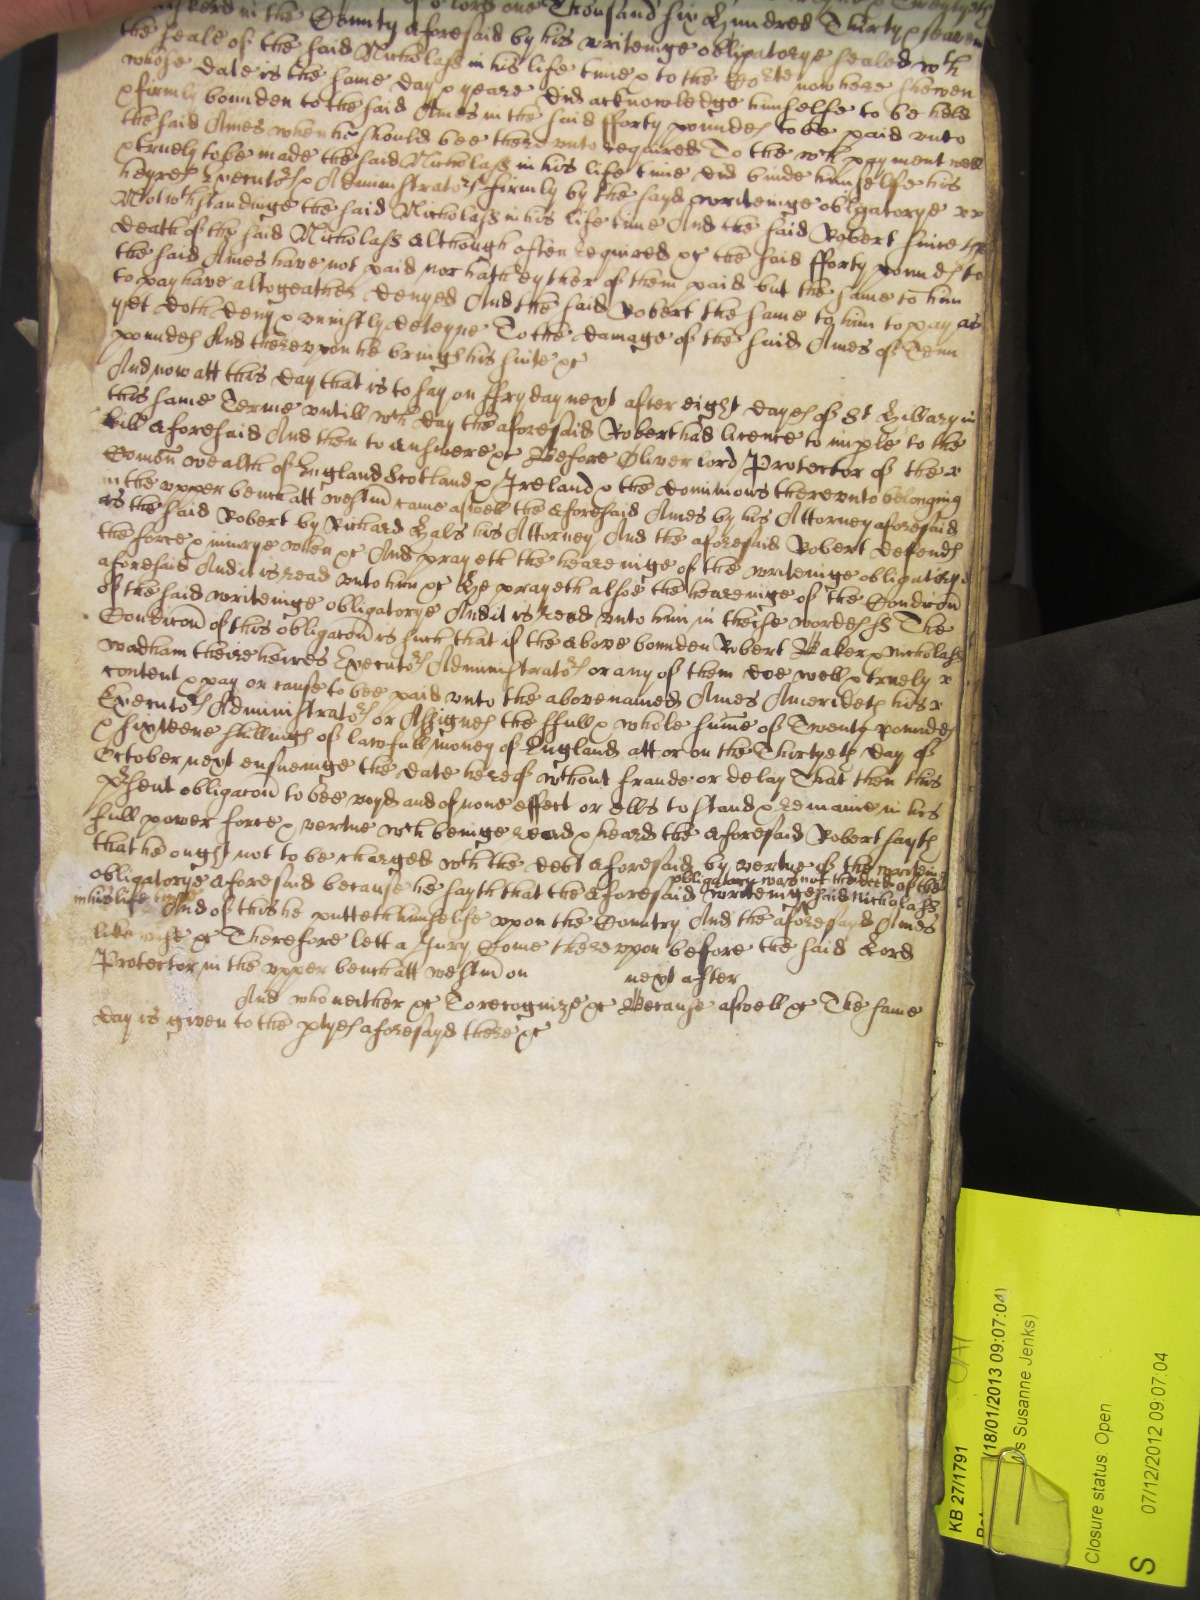 of o lord one Thousand six Hundred Thirty & seaven
in the County aforesaid by his writeinge obligatorye sealed wth
the seale of the said Nicholass in his life time & to the Corte now here shewen
whose date is the same day & yeare did acknowledge himselfe to be held
& firmly bounden to the said Ames in the said fforty poundes to be paid unto
the said Ames when he should bee there unto required To the wch payment well
& truely to be made the said Nicholass in his life time did binde himselfe his
heyres Executors & Administrators firmly by the sayd writeinge obligatorye
Notwthstandinge the said Nicholass in his life time And the said Robert since the
death of the said Nicholass although often required &c the said fforty poundes to
the said Ames have not paid nor hath eyther of them paid but the same to him
to pay have altogeather denyed And the said Robert the same to him to pay as
yet doth deny & uniustly deteyne To the damage of the said Ames of Tenn
poundes And thereupon he brings his suite &c
And now att this day that is to say on ffryday next after eight dayes of St Hillary in
this same Terme untill wch day the aforesaid Robert had licence to imple to the
bill aforesaid And then to answere &c Before Oliver lord Protector of the
Comon wealth of England Scotland & Ireland & the dominions thereunto belonging
in the upper bench att westm came aswell the aforesaid Ames by his Attorney aforesaid
as the said Robert by Richard Hals his Attorney And the aforesaid Robert defends
the force & iniurye when &c And prayeth the heareinge of the writeinge obligatorye
aforesaid And it is read unto him &c He prayeth alsoe the heareinge of the Condicon
of the said writeinge obligatorye And it is read unto him in theise wordes ss The
Condicon of this obligacon is such that if the above bounden Robert Baker & Nicholass
Wadham theire heires Executors Administrators or any of them doe well & truely
content & pay or cause to bee paid unto the abovenamed Ames Amerideth his
Executors Administrators or Assignes the ffull & whole sume of Twenty poundes
& sixteene shillings of lawfull money of England att or on the Thirtyeth day of
October next ensueinge the date hereof wthout fraude or delay That then this
psent obligacon to bee voyd and of none effect or ells to stand & remaine in his
full power force & vertue wch beinge read & heard the aforesaid Robert sayth
that he ought not to be charged wth the debt aforesaid by vertue of the writeinge
obligatory was not the deed of the
obligatorye aforesaid because he sayth that the aforesaid writeinge said Nicholass
in his life time And of this he putteth himselfe upon the Country And the aforesayd Ames
likewise &c Therefore lett a Jury Come thereupon before the said Lord
Protector in the upper bench att westm on next after
And who neither &c To recognize &c Because aswell &c The same
day is given to the ptyes aforesayd there &c
KB 27/1791
(18/01/2013 09:07:04)
s Susanne Jenks)
Closure status: Open
S 07/12/2012 09:07:04